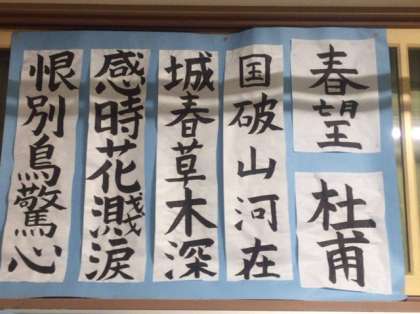 春望
杜甫
国破山河在
城春草木深
感時花濺涙
恨別鳥驚心